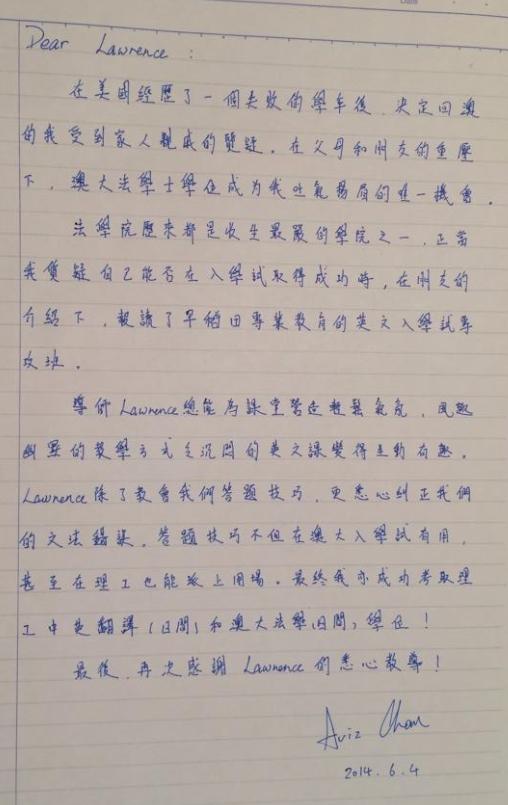 Dear Lawrence :
在美國經歷了一個失敗的學年後，決定回澳
的我受到家人親戚的質疑。在父母和朋友的重壓
下，澳大法學士學位成為我吐氣揚眉的唯一機會。
法學院歷來都是收生最嚴的學院之一，正當
我質疑自己能否在入學試取得成功時，在朋友的
介紹下，報讀了早稻田專業教育的英文入學試專
攻班。
導師Lawrence總能為課堂營造輕鬆氣氛，風趣
幽默的教學方式令沉悶的英文課變得生動有趣。
Lawrence除了教會我們答題技巧，更悉心糾正我們
的文法錯誤。答題技巧不但在澳大入學試有用，
甚至在理工也能派上用場。最終我亦成功考取理
工中英翻譯(日間)和澳大法學(日間)學位！
最後，再次感謝 Lawrence 的悉心教導！
Aviz Chan
2014.6.4